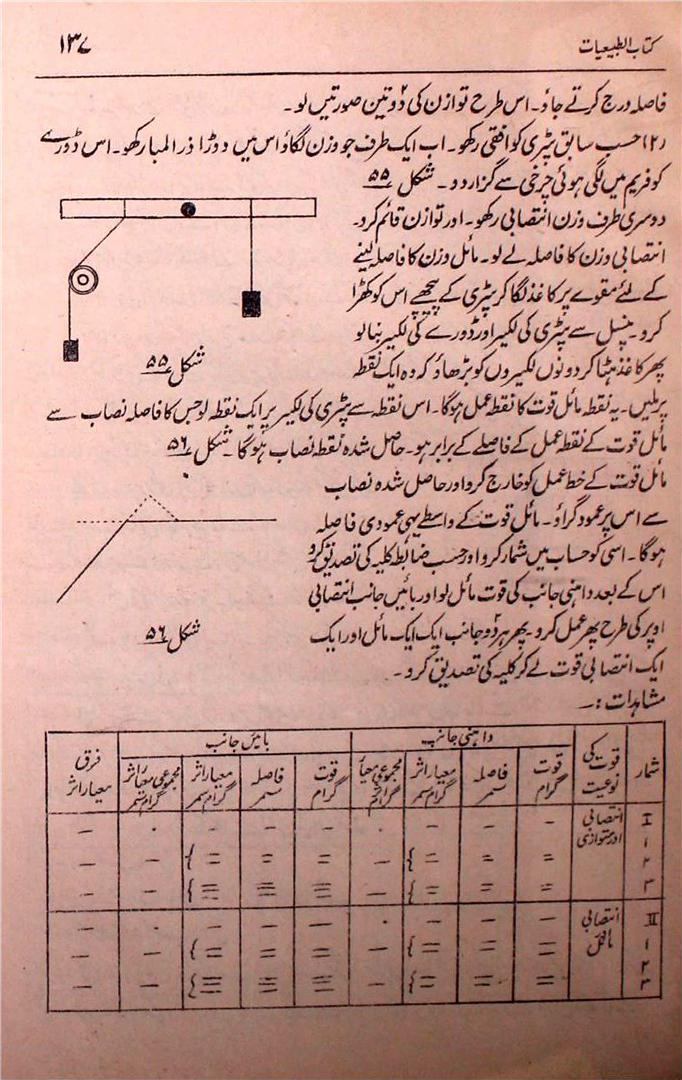 کتاب الطبیعیات
۱۳۷
فاصلہ درج کرتے جاؤ۔ اس طرح توازن کی دوتین صورتیں لو۔
(۲) حسب سابق پٹری کو افقی رکھو۔ اب ایک طرف جو وزن لگاؤ اس میں دوڑا ذرا لمبا رکھو۔ اس ڈورے
کو فریم میں لگی ہوئی چرخی سے گزار دو۔ شکل ۵۵
دوسری طرف وزن انتصابی رکھو۔ اور توازن قائم کرو۔
انتصابی وزن کا فاصلہ لے لو۔ مائل وزن کا فاصلہ لینے
کے لئے مقوے پر کاغذ لگا کر پٹری کے پیچھے اس کو کھڑا
کرو۔ پنسل سے پٹری کی لکیر اور ڈورے کی لکیر بنا لو
پھر کاغذ ہٹا کر دونوں لکیروں کو بڑھاؤ کہ وہ ایک نقطہ
شکل ۵۵
پر ملیں۔ یہ نقطہ مائل قوت کا نقطہ عمل ہوگا۔ اس نقطہ سے پٹری کی لکیر پر ایک نقطہ لو جس کا فاصلہ نصاب سے
مائل قوت کے نقطہ عمل کے فاصلے کے برابر ہو۔ حاصل شدہ نقطہ نصاب ہوگا۔ شکل ۵۶
مائل قوت کے خط عمل کو خارج کرو اور حاصل شدہ نصاب
سے اس پر عمود گراؤ۔ مائل قوت کے واسطے یہی عمودی فاصلہ
ہوگا۔ اسی کو حساب میں شمار کرو اور حسب ضابطہ کلیہ کی تصدیق کرو
اس کے بعد داہنی جانب کی قوت مائل لو اور بائیں جانب انتصابی
اوپر کی طرح پھر عمل کرو۔ پھر ہر دو جانب ایک ایک مائل اور ایک
شکل ۵۶
ایک انتصابی قوت لے کر کلیہ کی تصدیق کرو۔
مشاہدات :۔
شمار قوت کی نوعیت داہنی جانب بائیں جانب فرق معیار اثر
قوت گرام فاصلہ سمر معیار اثر گرام سمر مجموعی معیار اثر گرام سمر قوت گرام فاصلہ سمر معیار اثر گرام سمر مجموعی معیار اثر گرام سمر
I انتصابی اور متوازی — — — ۰ — — — ۰ —
۱
۲ = = = } — = = = } — —
۳ = = = } — ≡ ≡ ≡ } — —
II انتصابی مائل — — — ۰ — — — ۰ —
۱ = = = } — = = = } — —
۲
۳ = = = } — ≡ ≡ ≡ } — —